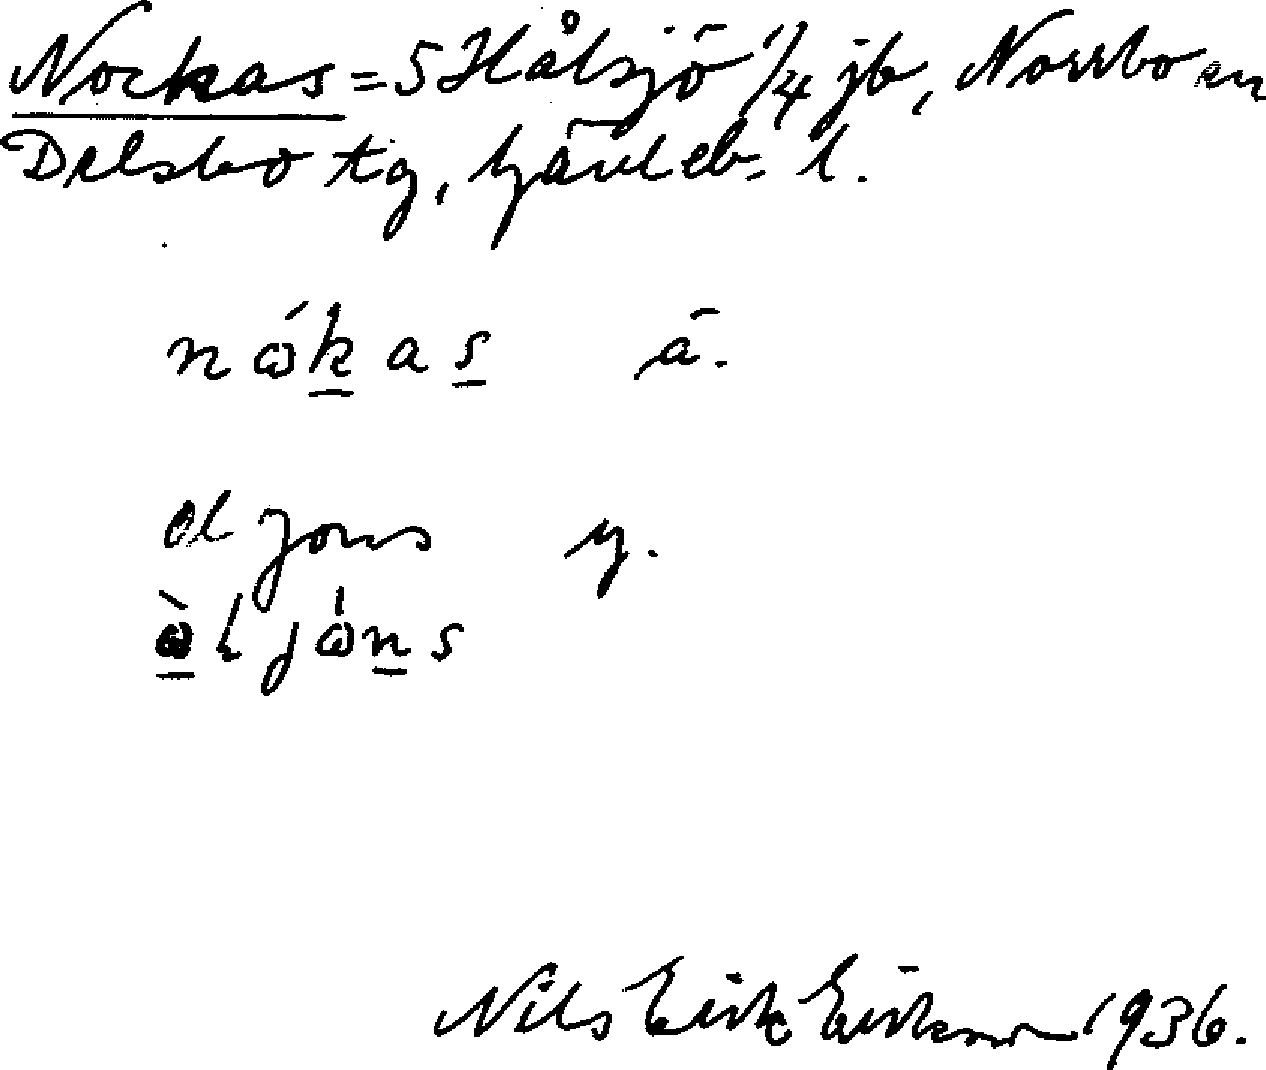 Nockas = 5 Hålsjö 1/4 jb, Norrbo sn
Delsbo tg, Gävleb. l.
nɷ́kas ä.
Ol Jons y.
ɷ̀l jɷ́ns
Nils Erik Eriksson 1936.